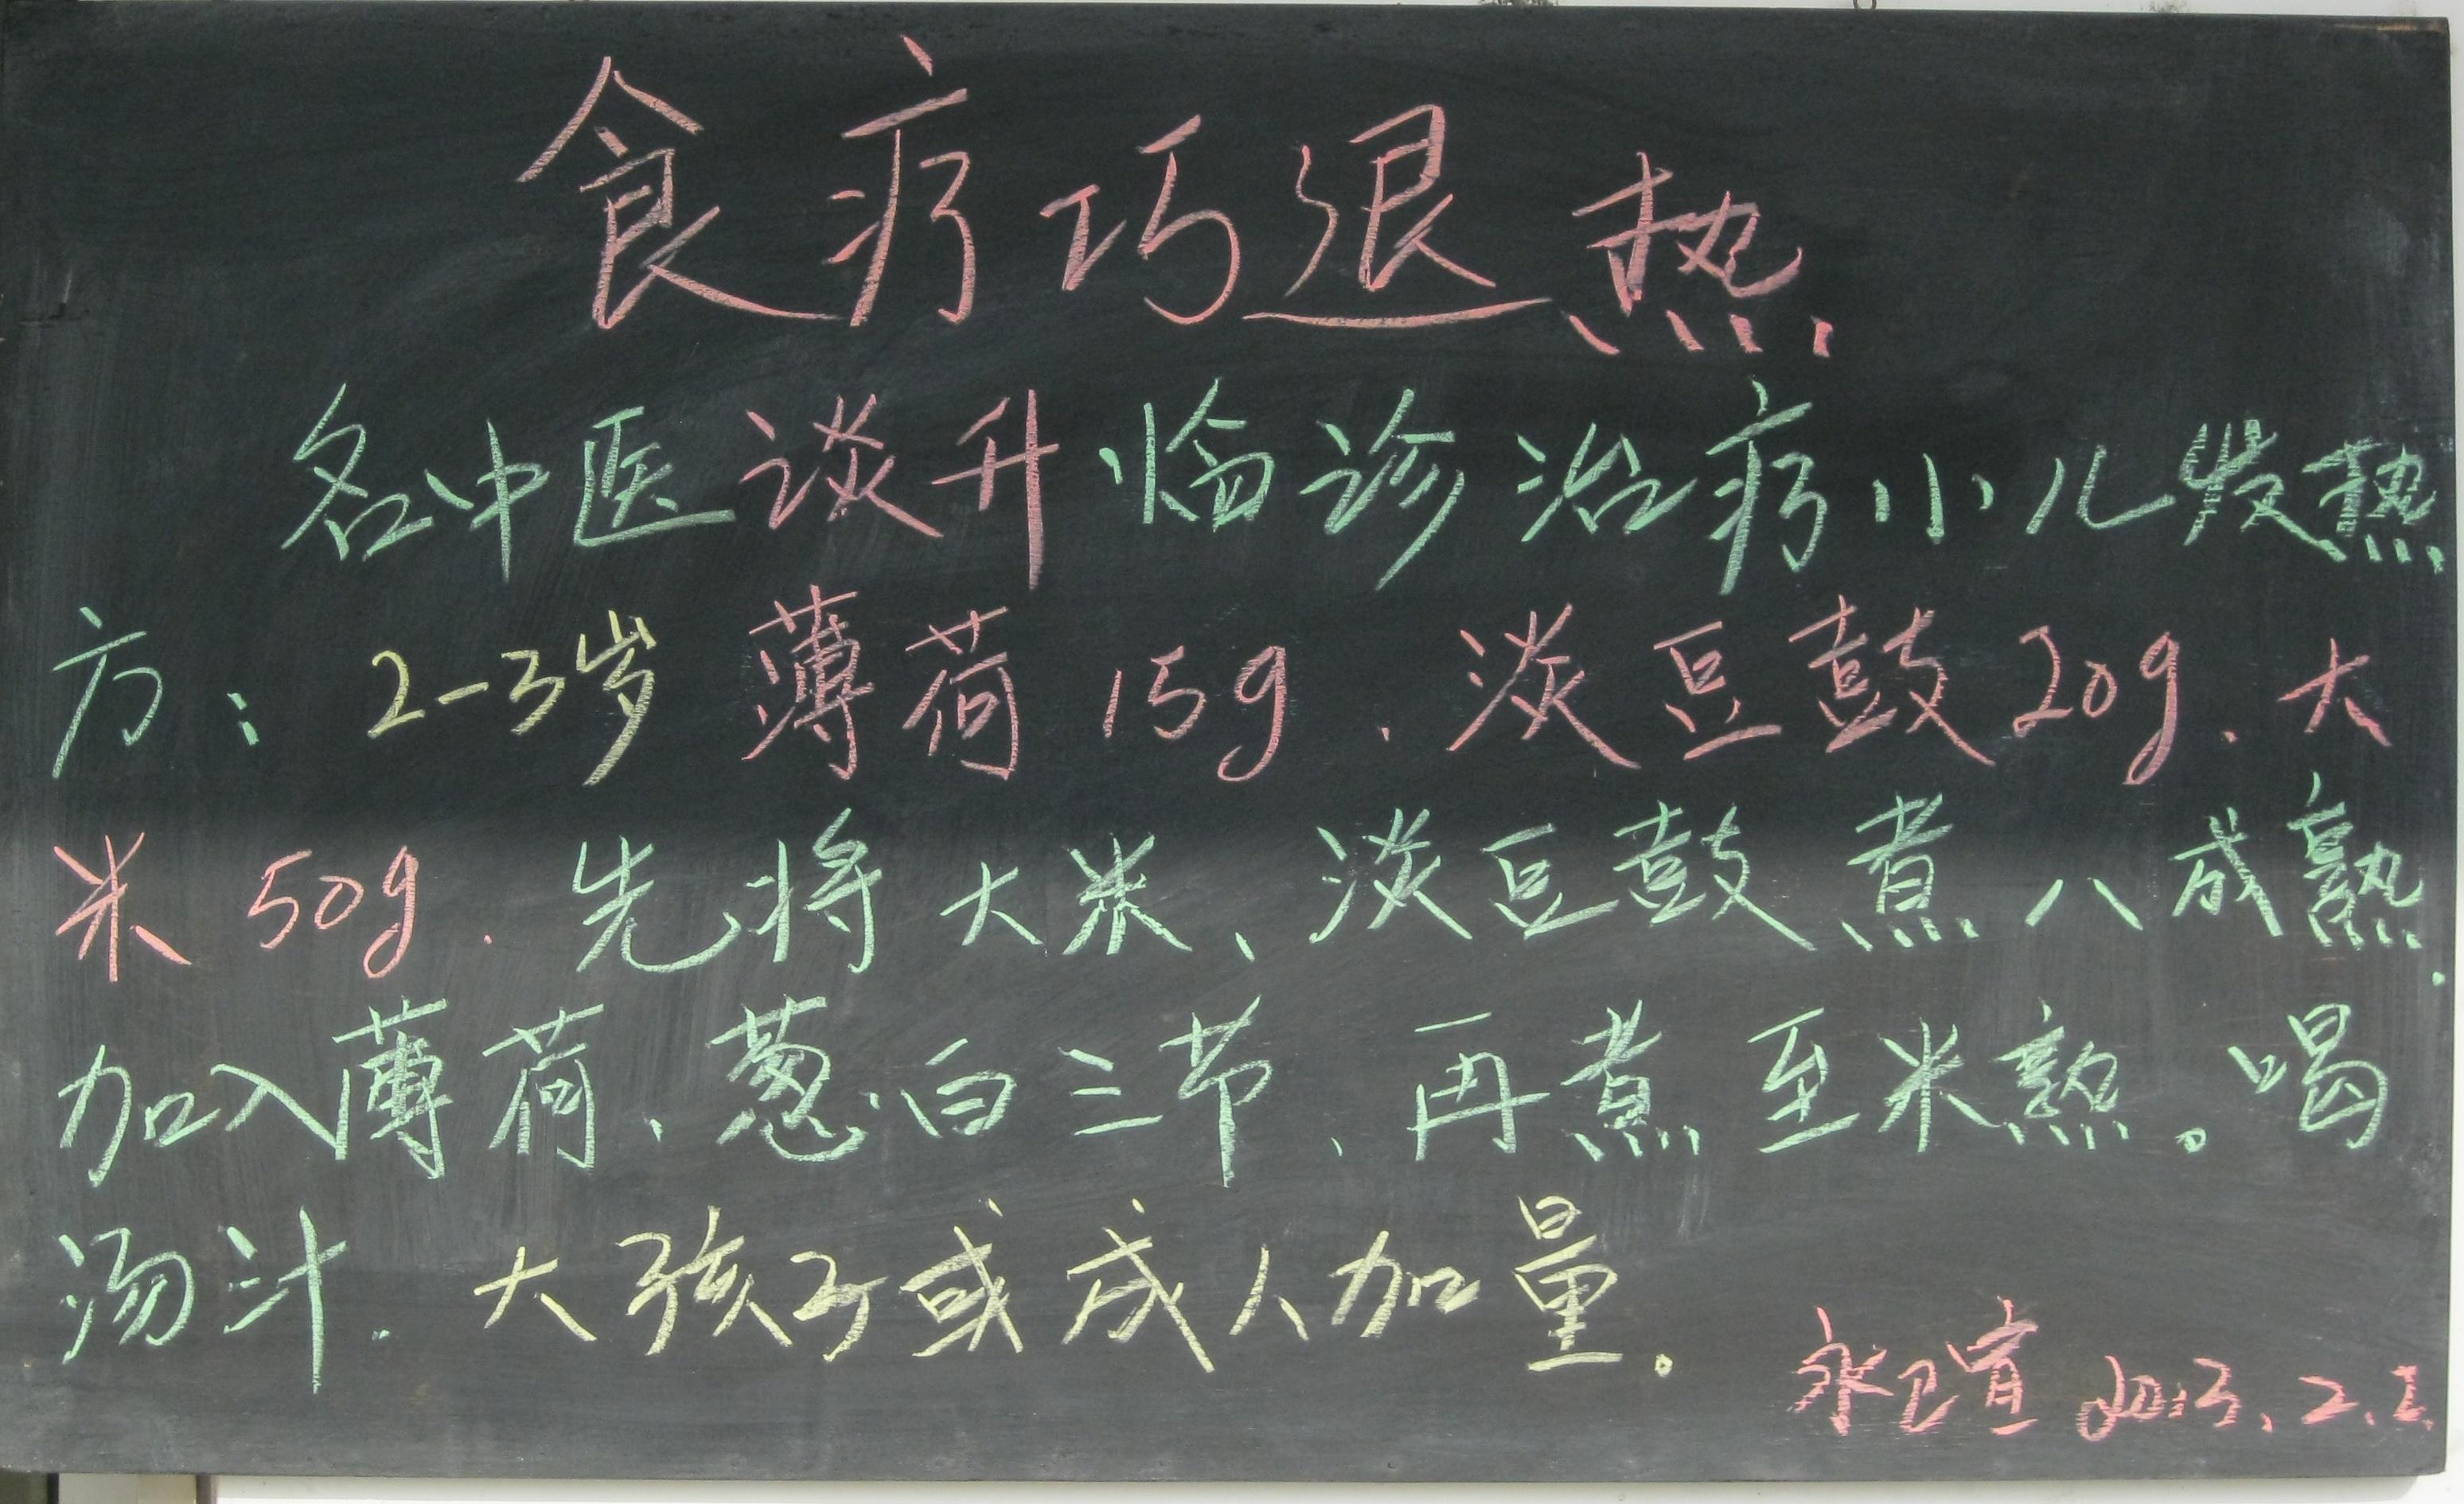 食疗巧退热
名中医谈升临诊治疗小儿发热
方：2-3岁薄荷15g、淡豆鼓20g、大
米50g.先将大米、淡豆鼓煮八成熟.
加入薄荷、葱白三节、再煮至米熟。喝
汤汁.大孩子或成人加量。
永卫宣 2013.2.2.